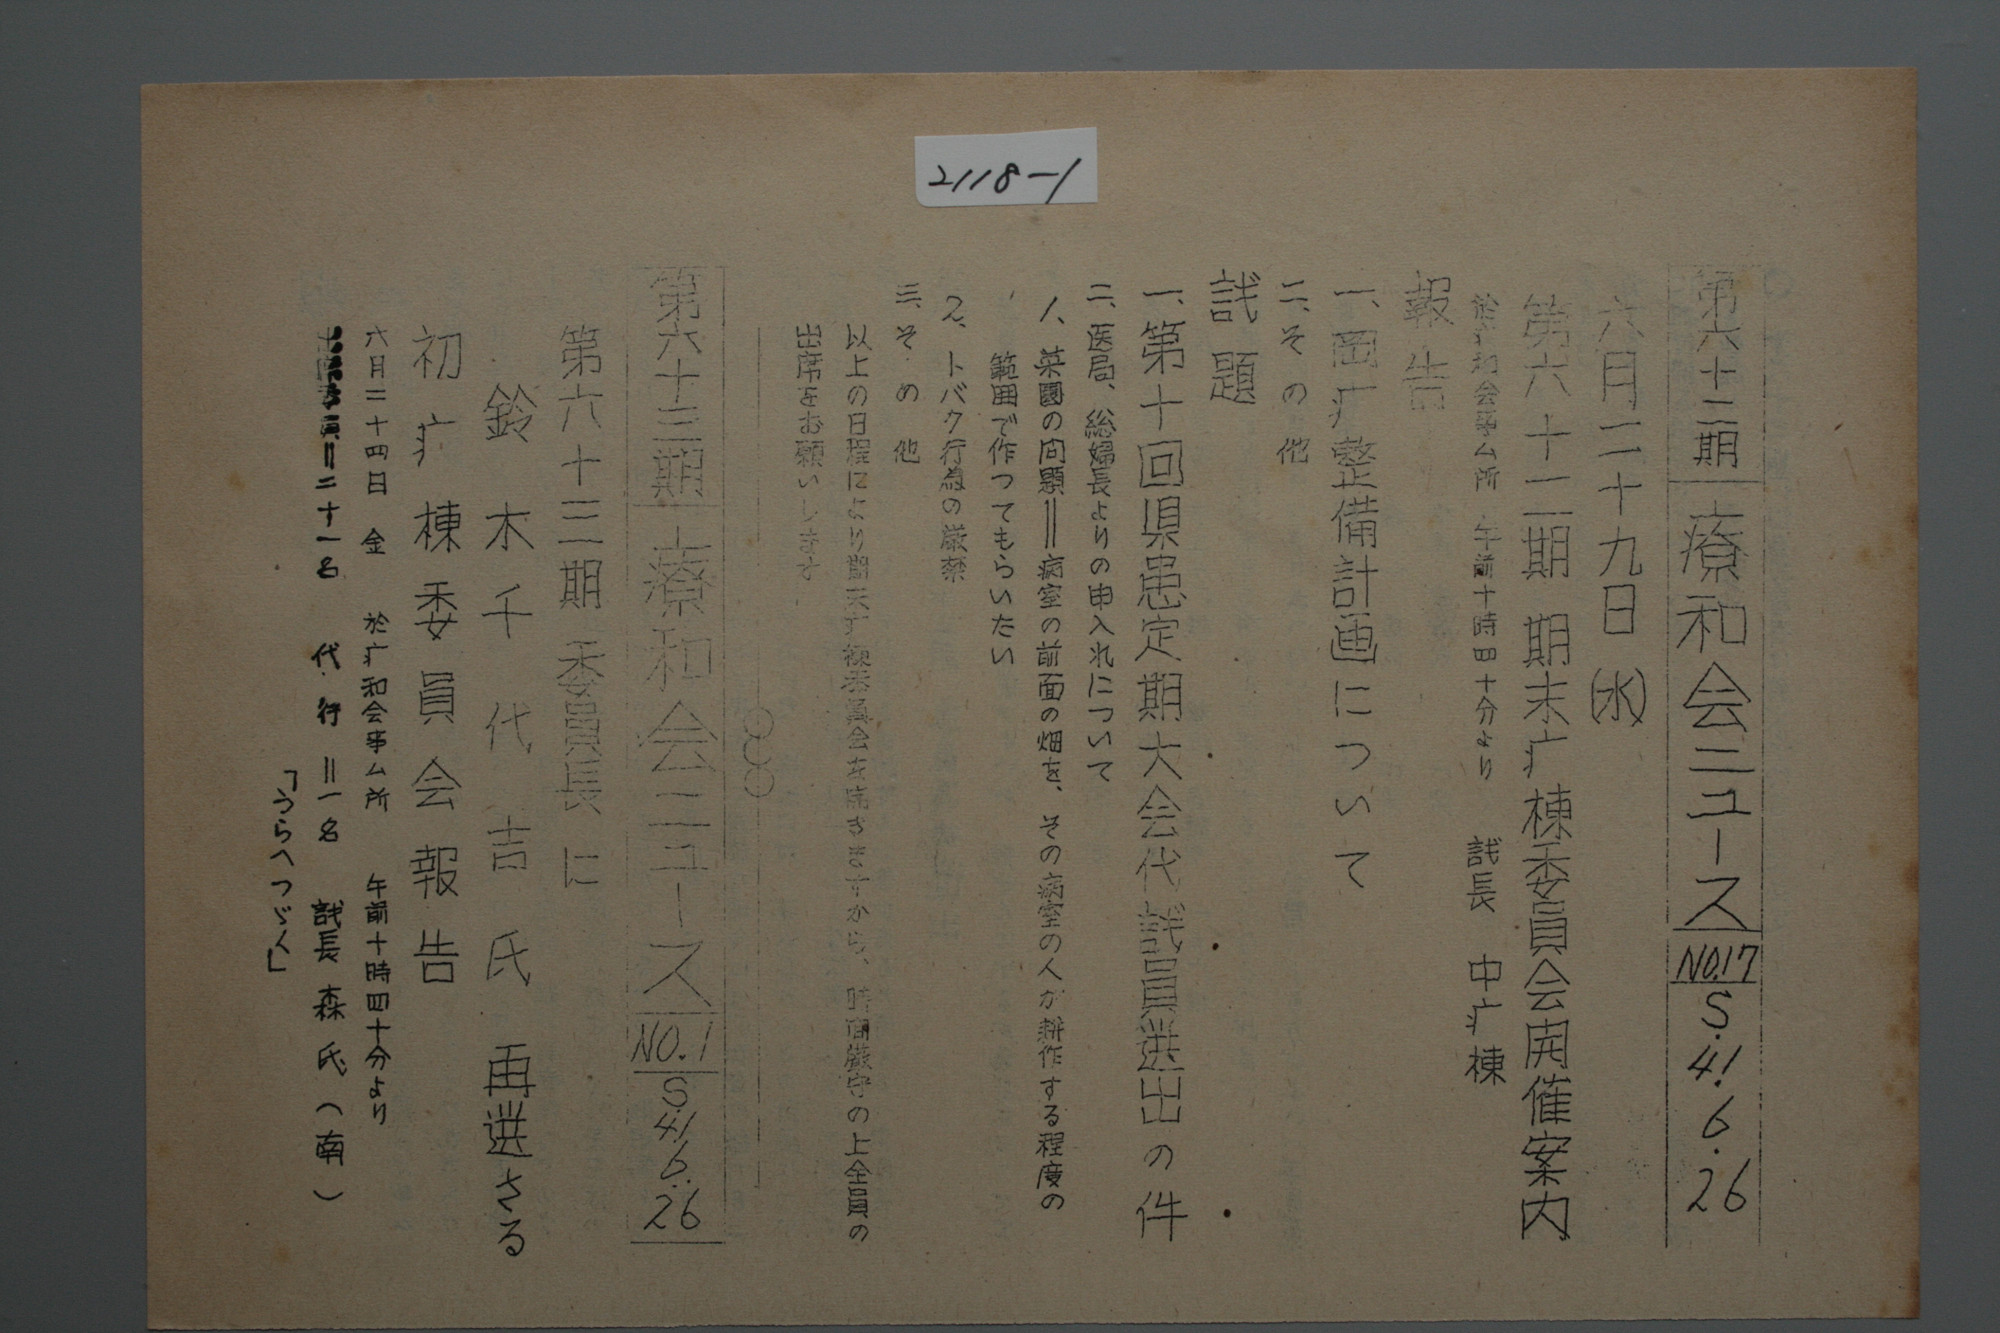 2118-1
第六十二期 療和会ニュース NO.17 S.41.6.26
六月二十九日(水)
第六十二期 期末疒棟委員会開催案内
於疒和会事ム所 午前十時四十分より 議長 中疒棟
報告
一、岡疒整備計画について
二、その他
議題
一、第十回県患定期大会代議員選出の件
二、医局、総婦長よりの申入れについて
1、菜園の問題＝病室の前面の畑を、その病室の人が耕作する程度の
範囲で作つてもらいたい
2、トバク行為の厳禁
三、その他
以上の日程により期末疒棟委員会を開きますから、時間厳守の上全員の
出席をお願いします
第六十三期 療和会ニュース NO.1 S.41.6.26
第六十三期委員長に
鈴木千代吉氏再選さる
初疒棟委員会報告
六月二十四日 金 於疒和会事ム所 午前十時四十分より
出席委員＝二十一名 代行＝一名 議長森氏(南)
「うらへつゞく」